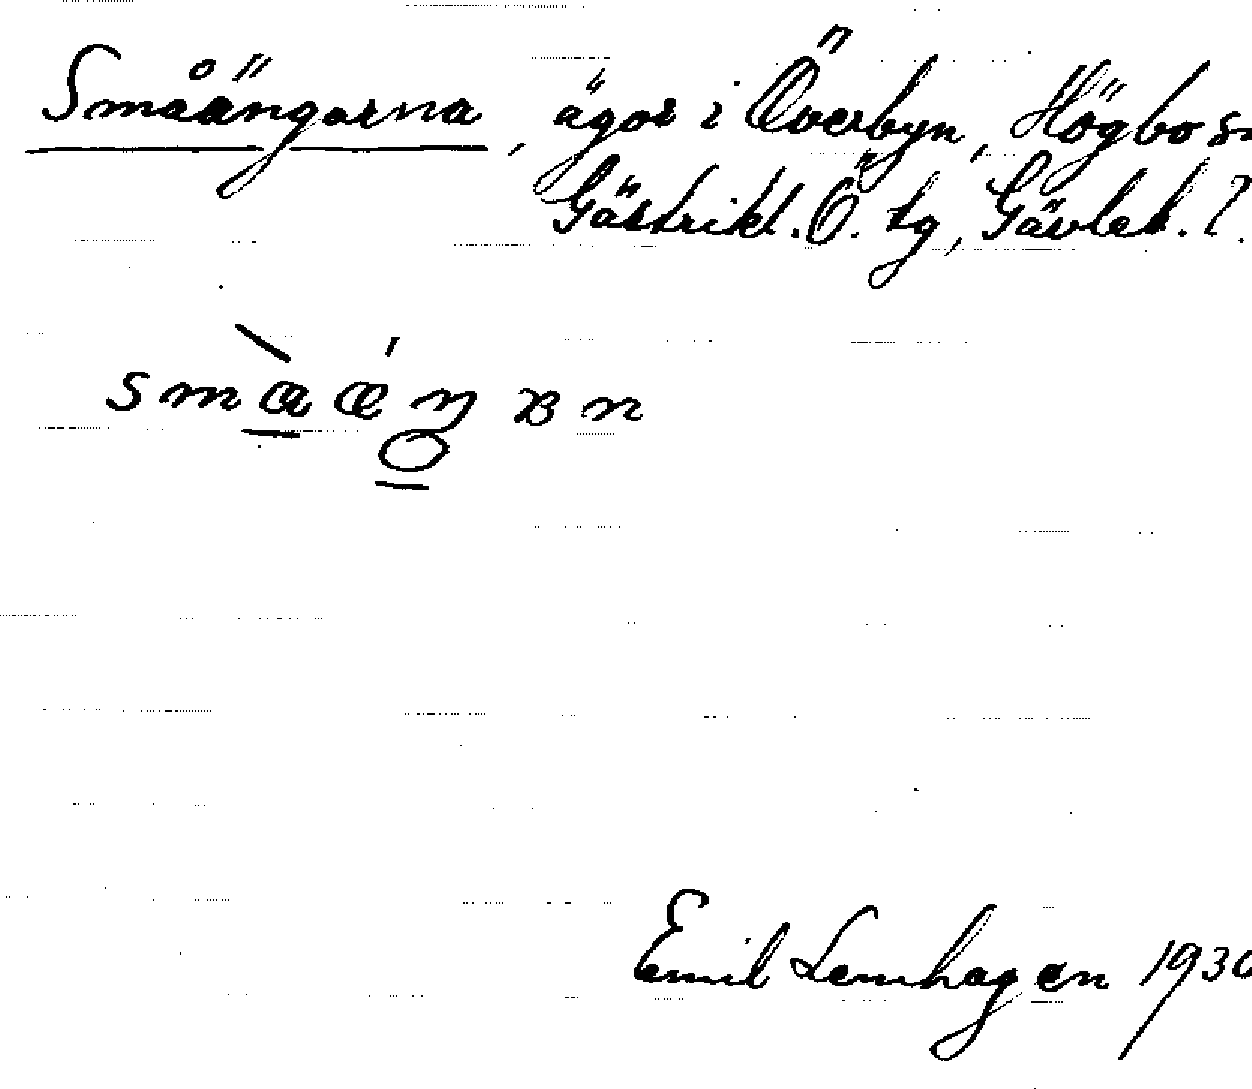 Småängarna, ägor i Överbyn, Högbo sn
Gästrikl. Ö. tg, Gävleb. l.
Emil Lemhagen 1930